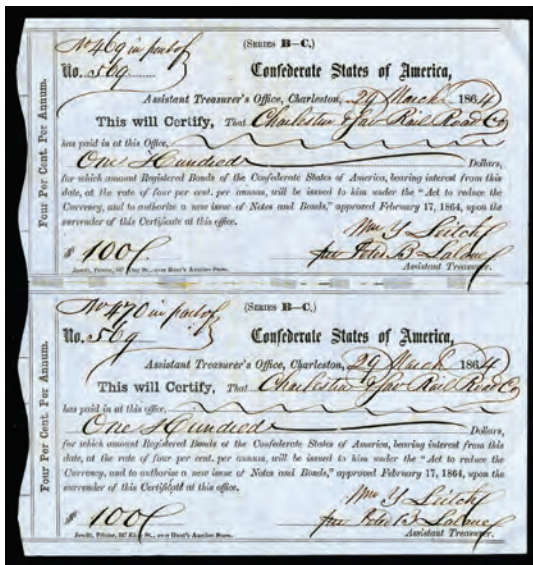 No 469 in part of
(SERIES B—C.)
No. 569
Confederate States of America,
Assistant Treasurer's Office, Charleston, 29 March 1864
This will Certify, That Charleston & Sav Rail Road Co
has paid in at this Office,
One Hundred Dollars,
for which amount Registered Bonds of the Confederate States of America, bearing interest from this
date, at the rate of four per cent. per annum, will be issued to him under the "Act to reduce the
Currency, and to authorize a new issue of Notes and Bonds," approved February 17, 1864, upon the
surrender of this Certificate at this office.
Wm Y Leitch
$ 100
for Peter B Lalane
Assistant Treasurer.
Four Per Cent. Per Annum.
No 470 in part of
(SERIES B—C.)
No. 569
Confederate States of America,
Assistant Treasurer's Office, Charleston, 29 March 1864
This will Certify, That Charleston & Sav Rail Road Co
has paid in at this office,
One Hundred Dollars,
for which amount Registered Bonds of the Confederate States of America, bearing interest from this
date, at the rate of four per cent. per annum, will be issued to him under the "Act to reduce the
Currency, and to authorize a new issue of Notes and Bonds," approved February 17, 1864, upon the
surrender of this Certificate at this office.
Wm Y Leitch
$ 100
for Peter B Lalane
Assistant Treasurer.
Four Per Cent. Per Annum.